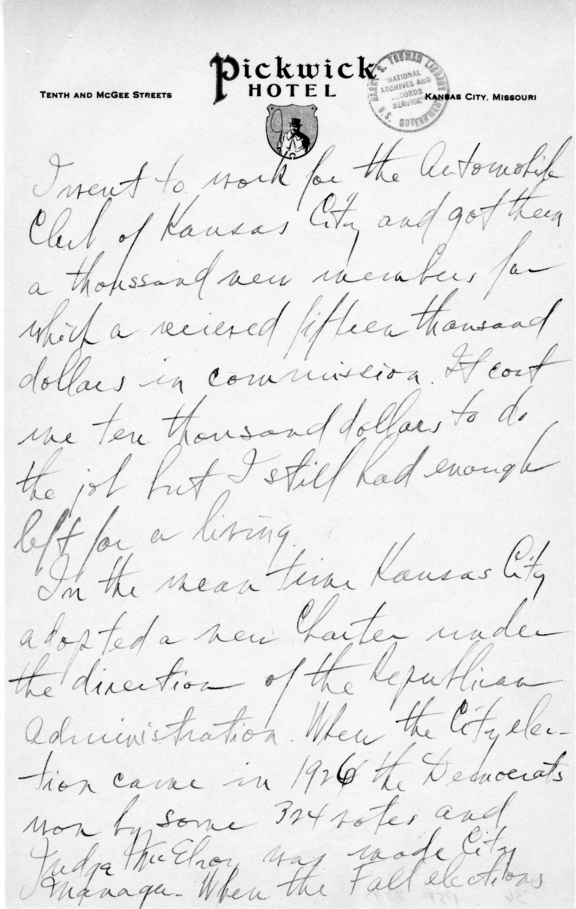 Pickwick
HOTEL
TENTH AND MCGEE STREETS
KANSAS CITY, MISSOURI
HARRY S. TRUMAN LIBRARY
NATIONAL
ARCHIVES AND
RECORDS
SERVICE
U.S. GOVERNMENT
I went to work for the Automobile
Club of Kansas City and got them
a thousand new members for
which a recieved fifteen thousand
dollars in commission. It cost
me ten thousand dollars to do
the job but I still had enough
left for a living.
In the mean time Kansas City
adopted a new Charter under
the direction of the Republican
administration. When the City elec-
tion came in 1926 the Democrats
won by some 304 votes and
Judge McElroy was made City
Manager. When the Fall elections